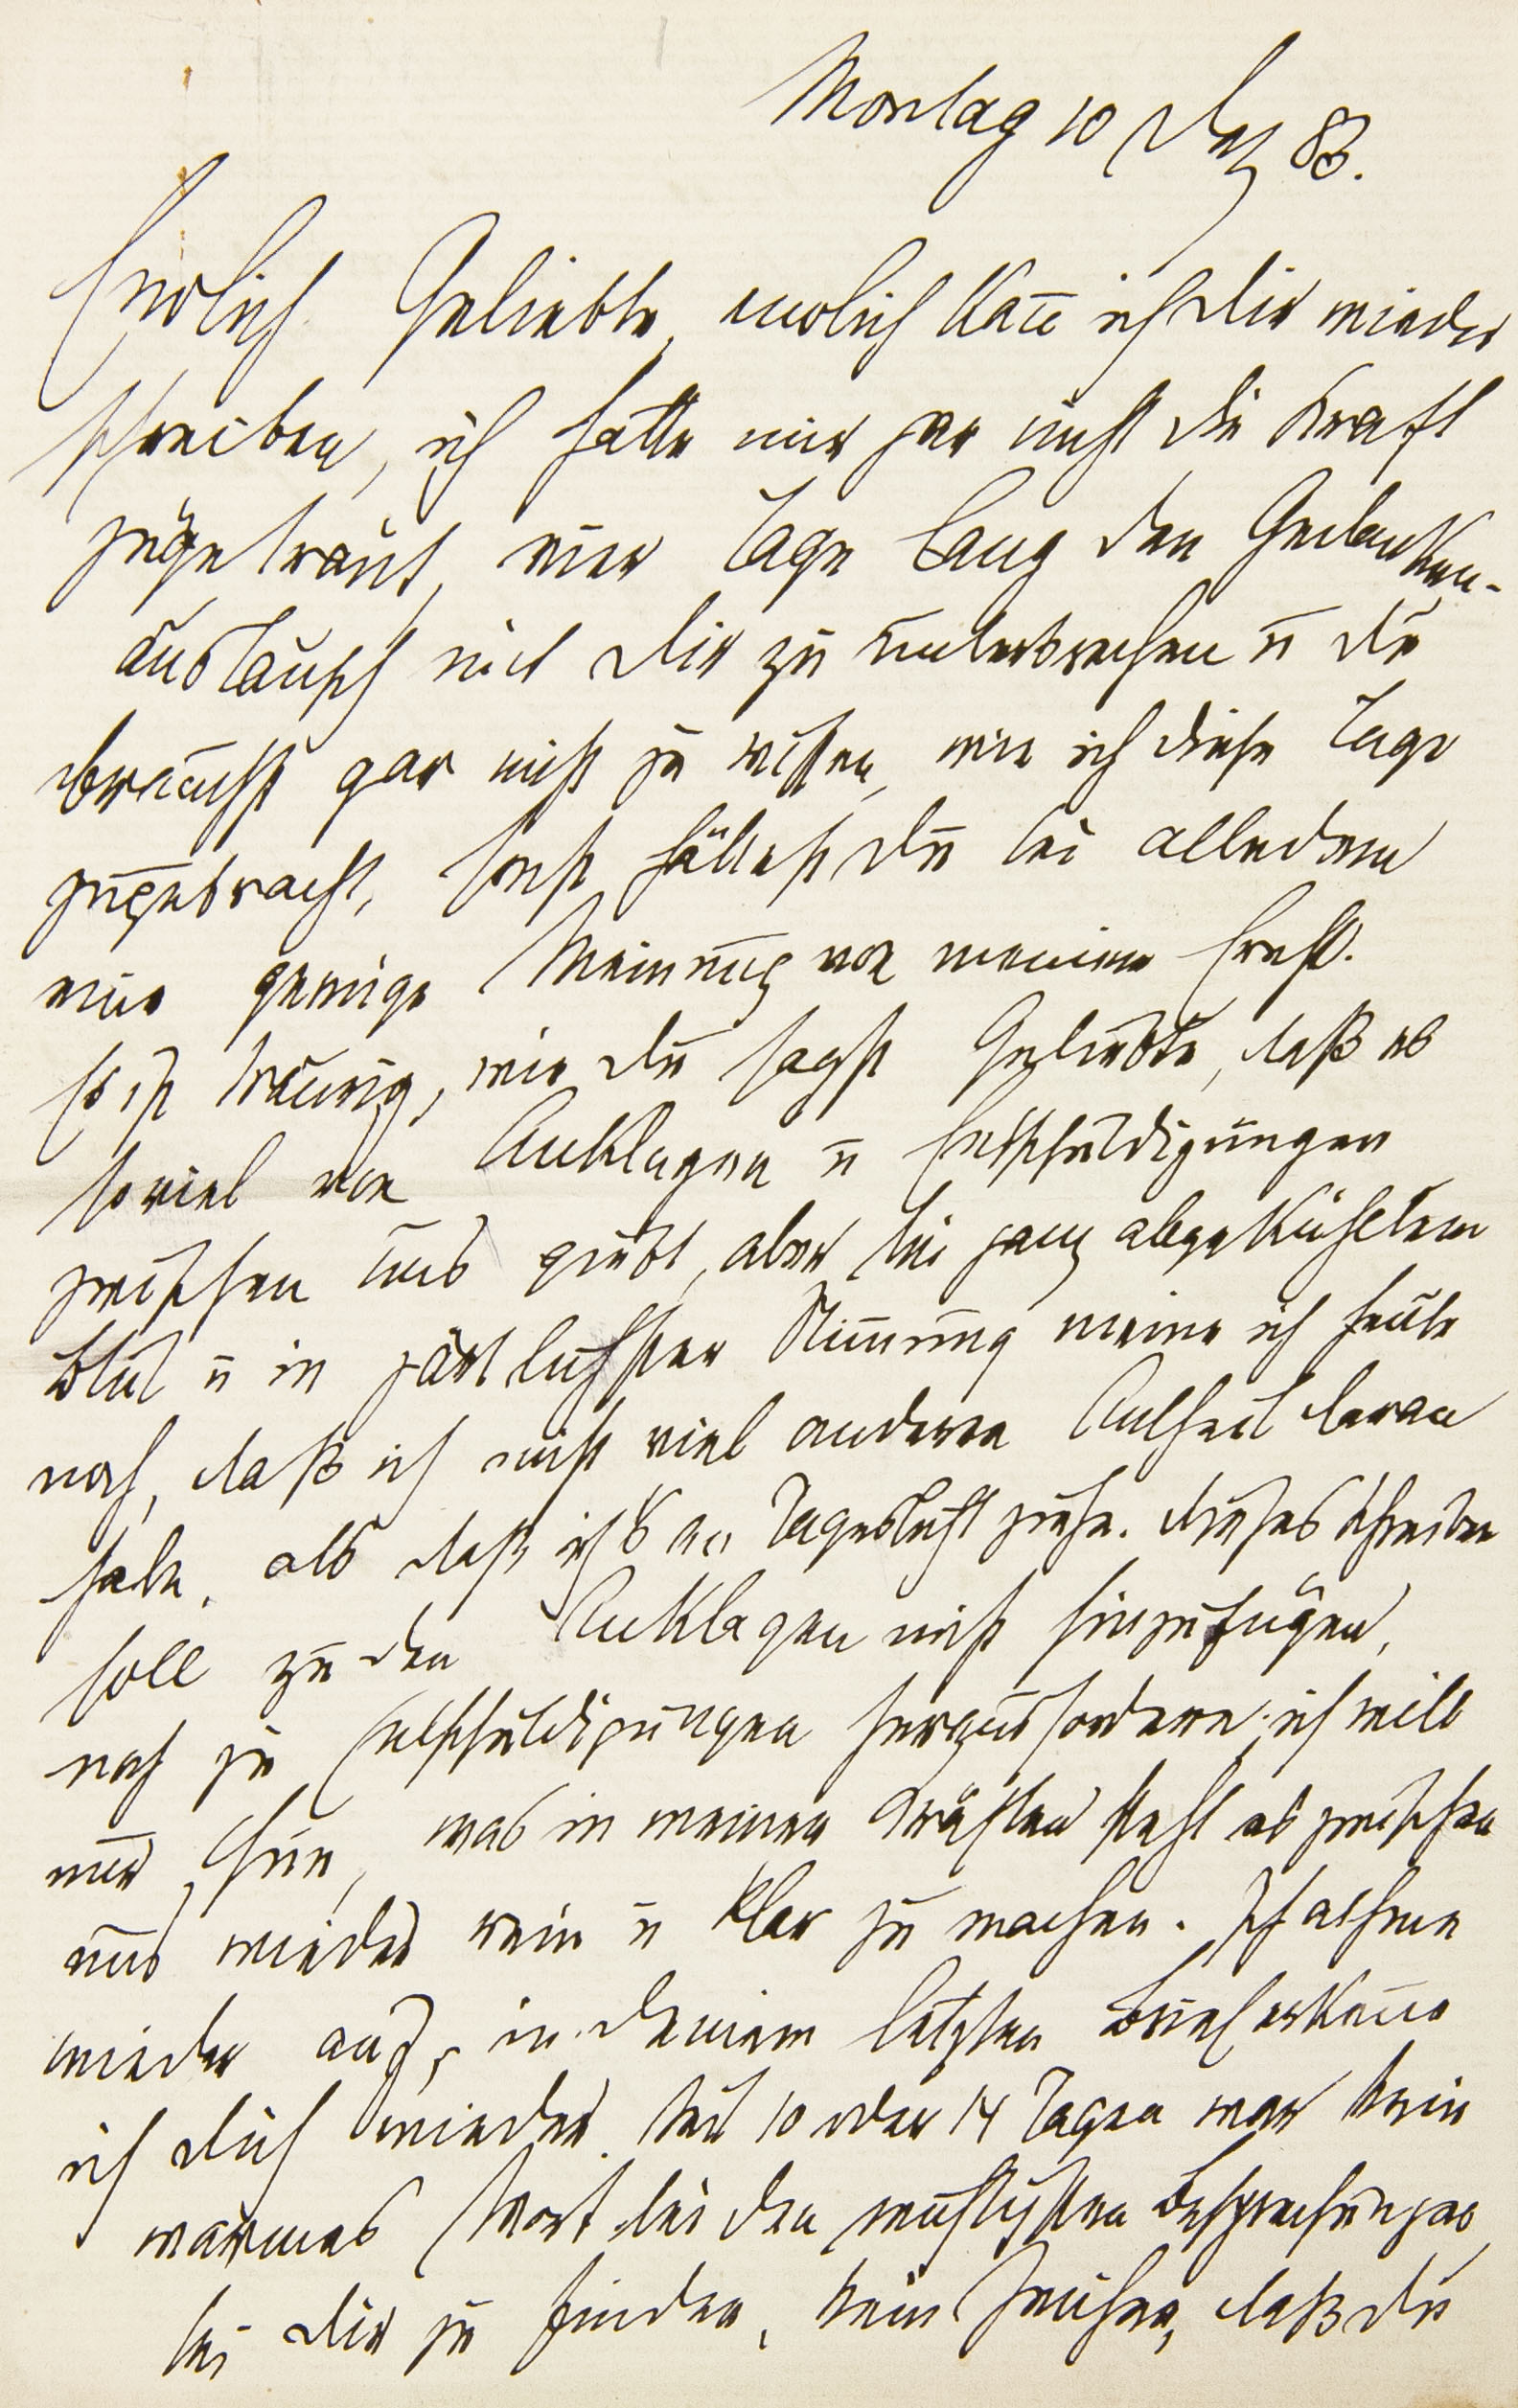 Montag 10 Dez 83.
Endlich Geliebte, endlich kann ich Dir wieder
schreiben, ich hatte mir gar nicht die Kraft
zugetraut, vier Tage lang den Gedanken-
austausch mit Dir zu unterbrechen u Du
brauchst gar nicht zu wissen, wie ich diese Tage
zugebracht, sonst hättest Du bei alledem
eine geringe Meinung von meinem Ernst.
Es ist traurig, wie Du sagst Geliebte, daß es
soviel von Anklagen u Entschuldigungen
zwischen uns giebt, aber bei ganz abgekühltem
Blut u in zärtlichster Stimmung meine ich heute
noch, daß ich nicht viel anderen Antheil daran
habe, als daß ich's ans Tageslicht ziehe. Dieses Schreiben
soll zu den Anklagen nicht hinzufügen,
noch zu Entschuldigungen herausfordern; ich will
nur thun, was in meinen Kräften steht es zwischen
uns wieder rein u klar zu machen. Ich athme
wieder auf, in Deinem letzten Brief erkenne
ich Dich wieder. Seit 10 oder 14 Tagen war kein
warmes Wort bei den wichtigsten Besprechungen
bei Dir zu finden, kein Zeichen, daß Du